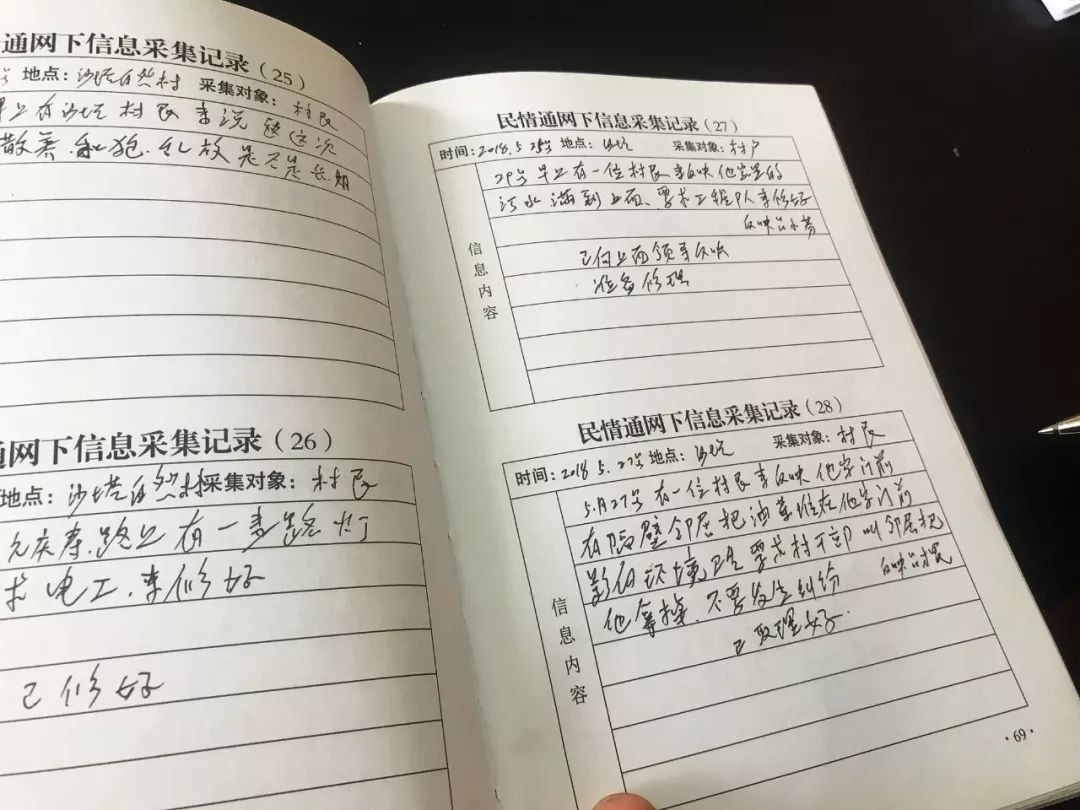 通网下信息采集记录（25）
地点：沙塔自然村 采集对象：村民
早上有沙塔村民来说
散养
是不是
通网下信息采集记录（26）
地点：沙塔自然村 采集对象：村民
路上有一盏路灯
求电工来修好
已修好
民情通网下信息采集记录（27）
时间：2018.5 地点：沙 采集对象：村户
29号早上有一位村民来反映他家里的
污水满到上面、要求工程队来修好
反映
已向上面领导反映
准备修理
信息内容
民情通网下信息采集记录（28）
时间：2018 5. 27号 地点：沙 采集对象：村民
5月27号有一位村民来反映他家门前
有隔壁邻居把油菜堆在他家门前
影响环境 要求村干部叫邻居把
他拿掉．不要发生纠纷 反映
已处理好．
信息内容
·69·